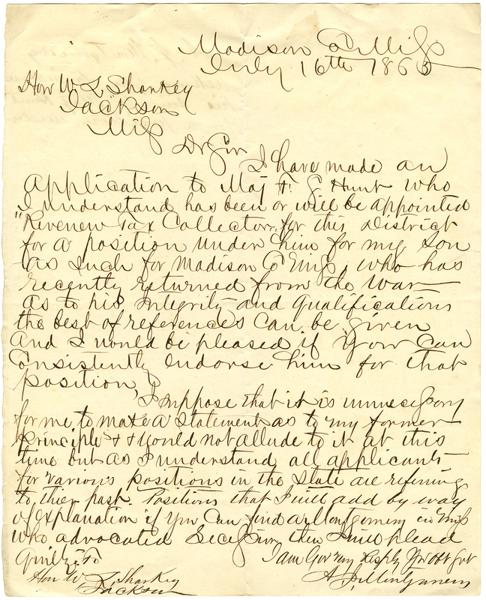 Madison Co Miss
July 16th 1865
Hon W L Sharkey
Jackson
Miss
Dr Sir
I have made an
application to Maj H. S Hunt who
I understand has been or will be appointed
"Revenew Tax Collector for this District
for a position under him for my Son
as Such for Madison Co Miss, who has
recently returned from the War
as to his integrity and qualifications
the best of references can be given
and I would be pleased if you can
Consistently endorse him for that
position
I suppose that it is unnecessary
for me to make a Statement as to my former
Principles & would not allude to it at this
time but as I understand all applicants
for various positions in the State are refering
to their past Positions that I will add by way
of explanation if you can find a Montgomery in Miss
who advocated Secession then I will plead
Guilty to
I am Gov very Resply Yr Obt Svt
Hon W L Sharkey
Jackson
Montgomery